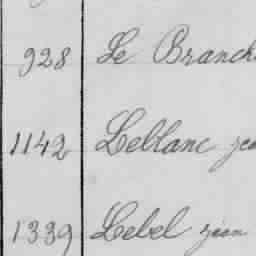 928 Le Branch
1142 Leblanc jea
1339 Lebel jean